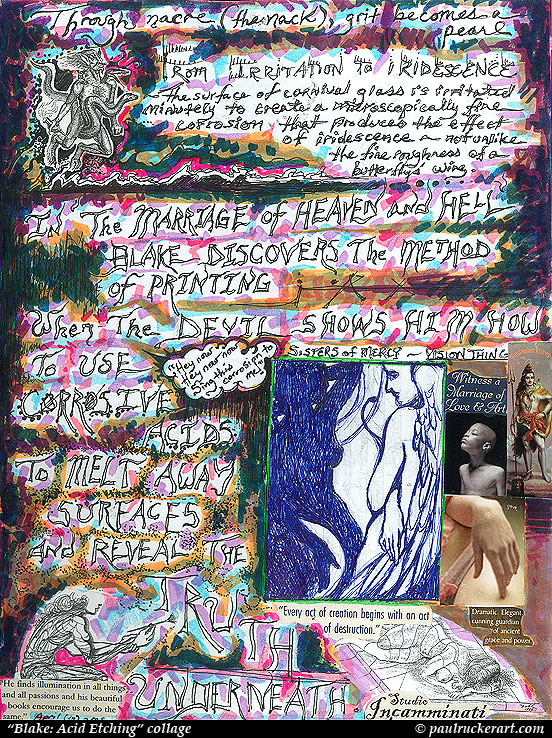 Through nacre (the knack), grit becomes a
pearl
FROM IRRITATION TO IRIDESCENCE
the surface of carnival glass is irritated
minutely to create a microscopically fine
corrosion that produces the effect
of iridescence ~ not unlike
the fine roughness of a
butterfly's wing.
IN THE MARRIAGE OF HEAVEN AND HELL
BLAKE DISCOVERS THE METHOD
OF PRINTING
When The DEVIL SHOWS HIM HOW
TO USE
CORROSIVE
ACIDS
TO MELT AWAY
SURFACES
AND REVEAL THE
TRUTH
UNDERNEATH.
"Hey now
hey now now
sing this
corrosion to
me!
SISTERS OF MERCY ~ VISION THING
Witness a
Marriage of
Love & Art
Dramatic. Elegant.
cunning guardian
of ancient
grace and power.
"Every act of creation begins with an act
of destruction."
"He finds illumination in all things
and all passions and his beautiful
books encourage us to do the
same."
Studio
Incamminati
"Blake: Acid Etching" collage
© paulruckerart.com